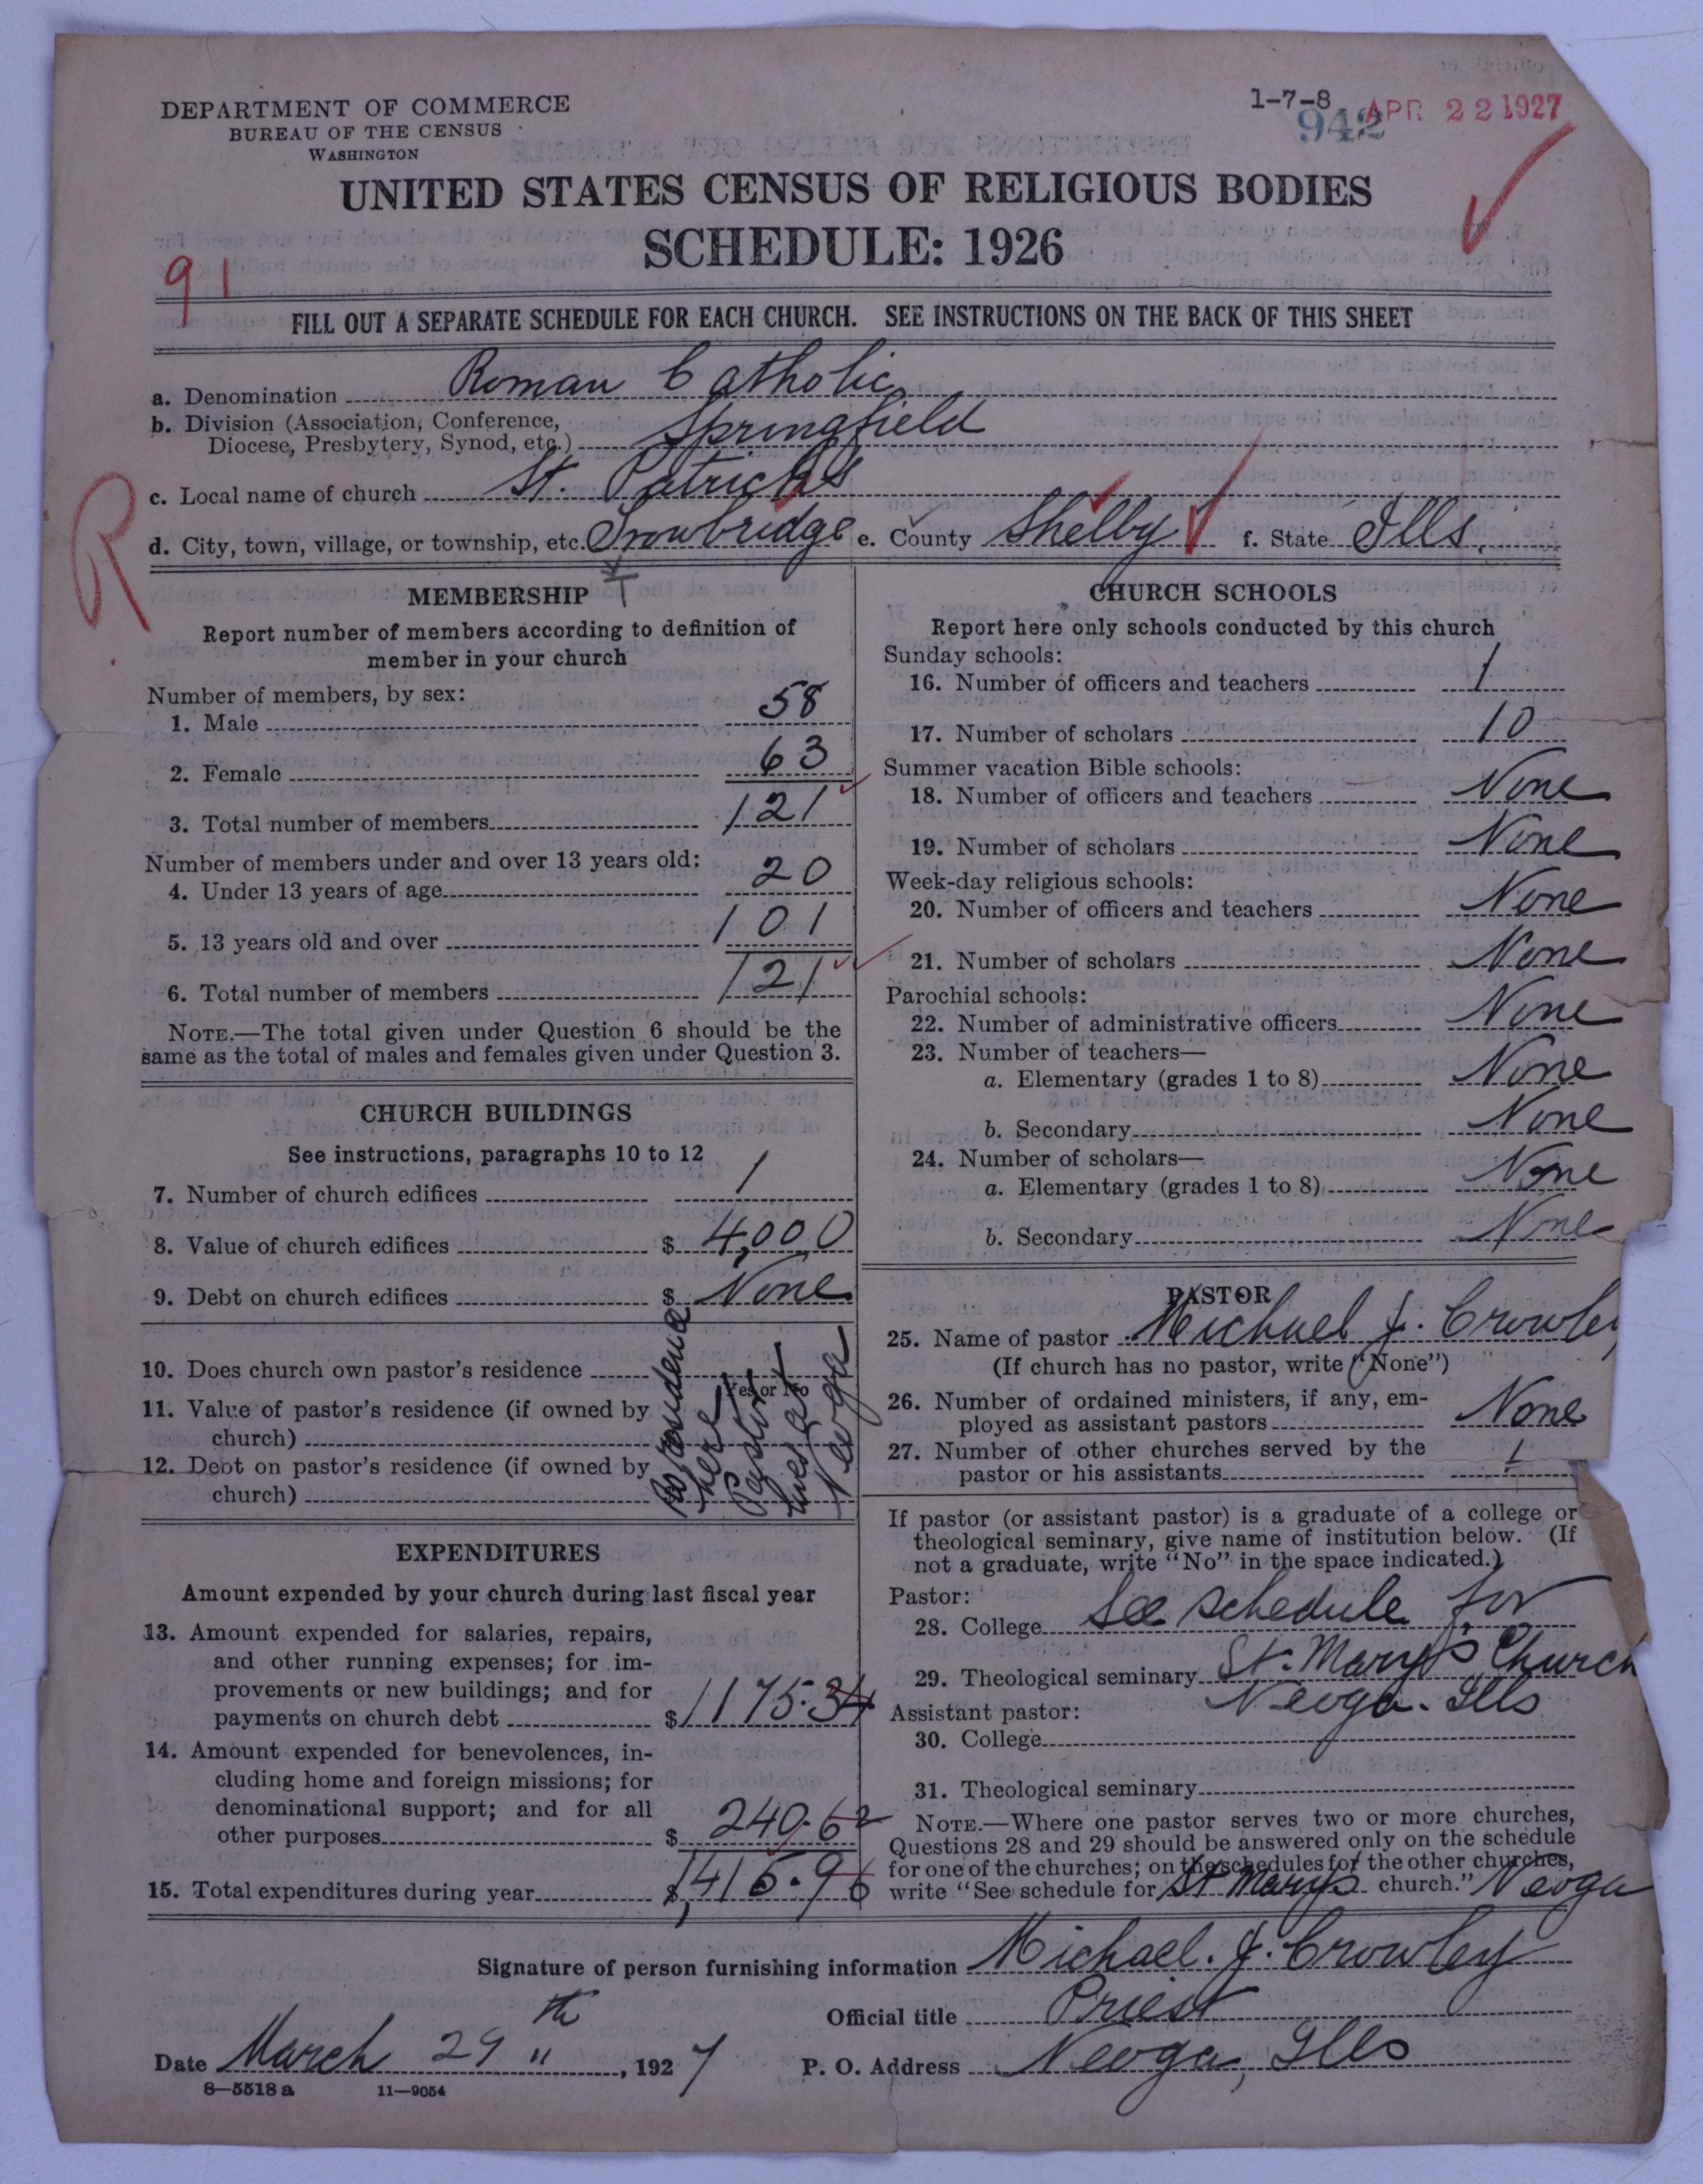 1-7-8
942
APR 22 1927
DEPARTMENT OF COMMERCE
BUREAU OF THE CENSUS
WASHINGTON
UNITED STATES CENSUS OF RELIGIOUS BODIES
SCHEDULE: 1926
91
FILL OUT A SEPARATE SCHEDULE FOR EACH CHURCH. SEE INSTRUCTIONS ON THE BACK OF THIS SHEET
a. Denomination Roman Catholic
b. Division (Association, Conference,
Diocese, Presbytery, Synod, etc.) Springfield
c. Local name of church St. Patrick's
R
d. City, town, village, or township, etc. Trowbridge e. County Shelby f. State Ills.
T
MEMBERSHIP
Report number of members according to definition of
member in your church
Number of members, by sex:
1. Male 58
2. Female 63
3. Total number of members 121
Number of members under and over 13 years old:
4. Under 13 years of age 20
5. 13 years old and over 101
6. Total number of members 121
NOTE.—The total given under Question 6 should be the
same as the total of males and females given under Question 3.
CHURCH BUILDINGS
See instructions, paragraphs 10 to 12
7. Number of church edifices 1
8. Value of church edifices $ 4,000
9. Debt on church edifices $ None
10. Does church own pastor's residence
Yes or No
11. Value of pastor's residence (if owned by
church)
12. Debt on pastor's residence (if owned by
church)
No residence
here
Pastor
lives at
Neoga
EXPENDITURES
Amount expended by your church during last fiscal year
13. Amount expended for salaries, repairs,
and other running expenses; for im-
provements or new buildings; and for
payments on church debt $ 1175.34
14. Amount expended for benevolences, in-
cluding home and foreign missions; for
denominational support; and for all
other purposes $ 240.62
15. Total expenditures during year $ 1,415.96
CHURCH SCHOOLS
Report here only schools conducted by this church
Sunday schools:
16. Number of officers and teachers 1
17. Number of scholars 10
Summer vacation Bible schools:
18. Number of officers and teachers None
19. Number of scholars None
Week-day religious schools:
20. Number of officers and teachers None
21. Number of scholars None
Parochial schools:
22. Number of administrative officers None
23. Number of teachers—
a. Elementary (grades 1 to 8) None
b. Secondary None
24. Number of scholars—
a. Elementary (grades 1 to 8) None
b. Secondary None
PASTOR
25. Name of pastor Michael J. Crowley
(If church has no pastor, write "None")
26. Number of ordained ministers, if any, em-
ployed as assistant pastors None
27. Number of other churches served by the
pastor or his assistants 1
If pastor (or assistant pastor) is a graduate of a college or
theological seminary, give name of institution below. (If
not a graduate, write "No" in the space indicated.)
Pastor:
28. College See schedule for
29. Theological seminary St. Mary's Church
Neoga. Ills
Assistant pastor:
30. College
31. Theological seminary
NOTE.—Where one pastor serves two or more churches,
Questions 28 and 29 should be answered only on the schedule
for one of the churches; on the schedules for the other churches,
write "See schedule for St Mary's church." Neoga
Signature of person furnishing information Michael. J. Crowley
Official title Priest
Date March 29th, 1927 P. O. Address Neoga, Ills
8—5518 a 11—9054